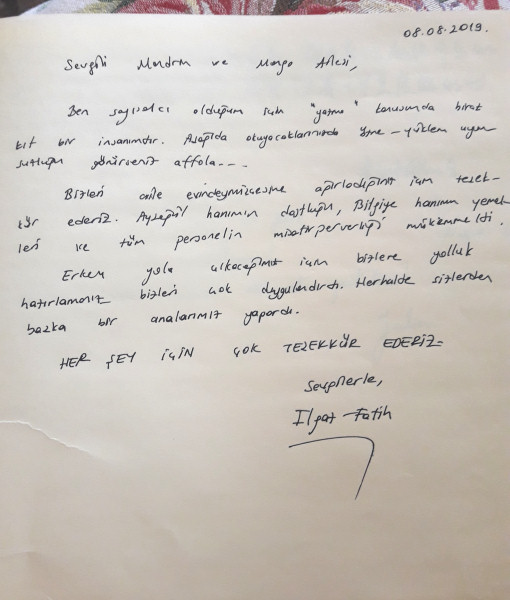 08.08.2019.
Sevgili Mandrin ve Margo Ailesi,
Ben sayısalcı olduğum için "yazma" konusunda biraz
kıt bir insanımdır. Aşağıda okuyacaklarınızda özne-yüklem uyum
suzluğu görürseniz affola---
Bizleri aile evindeymişcesine ağırladığınız için teşek-
kür ederiz. Ayşegül hanımın dostluğu, Bilgiye hanımın yemek
leri ve tüm personelin misafirperverliği mükemmeldi.
Erken yola çıkacağımız için bizlere yolluk
hazırlamanız bizleri çok duygulandırdı. Herhalde sizlerden
başka bir analarımız yapardı.
HER ŞEY İÇİN ÇOK TEŞEKKÜR EDERİZ
Sevgilerle,
Ilgat Fatih